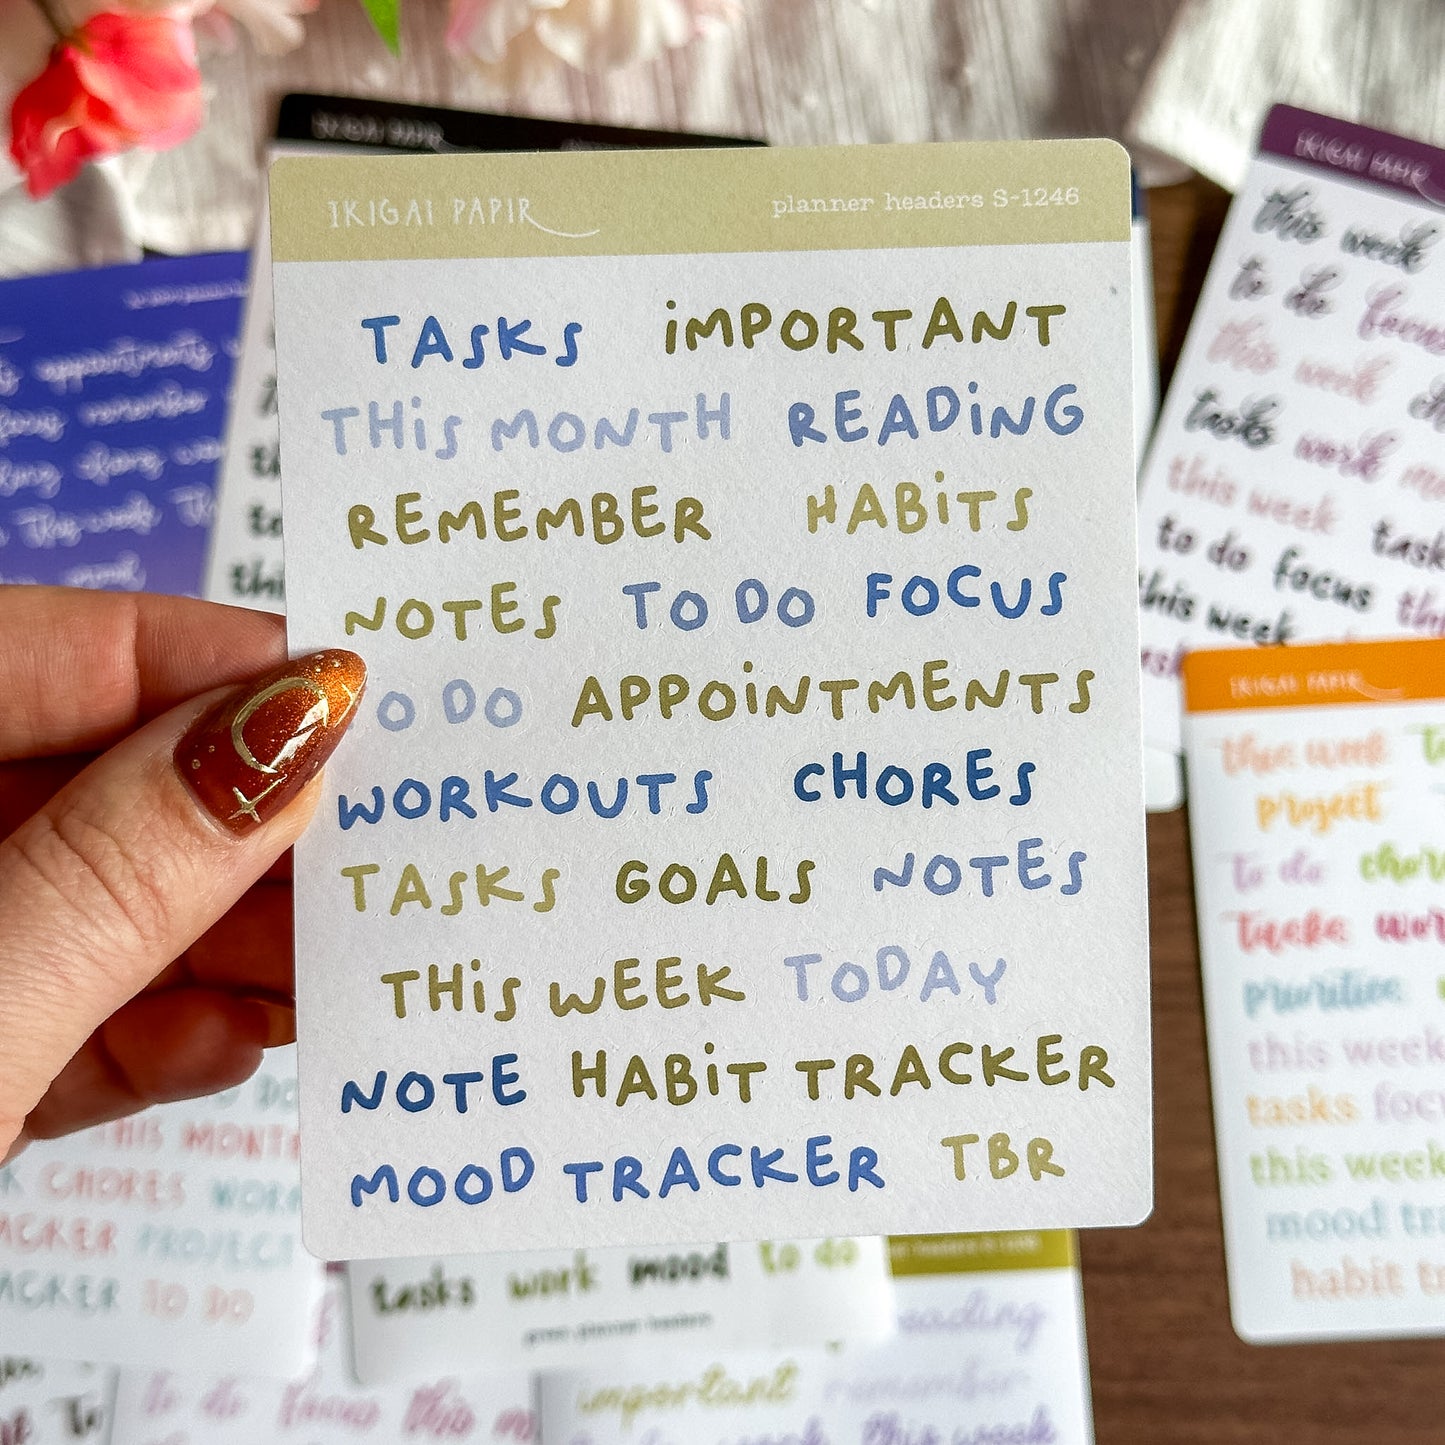 IKIGAI PAPIR
IKIGAI PAPIR planner headers S-1246
TASKS iMPORTANT
THiS MONTH READiNG
REMEMBER HABiTS
NOTES TO DO FOCUS
TO DO APPOiNTMENTS
WORKOUTS CHORES
TASKS GOALS NOTES
THiS WEEK TODAY
NOTE HABiT TRACKER
MOOD TRACKER TBR
IKIGAI PAPIR
this week
to do focus
this week
tasks work
this week task
to do focus
this week
IKIGAI PAPIR
this week
project
to do
tasks
priorities
this week
tasks
this week
mood
habit
appointments
THIS MONTH
CHORES
PROJECT
TO DO
tasks work mood to do
green planner headers
reading
important remember
to do focus this
this week